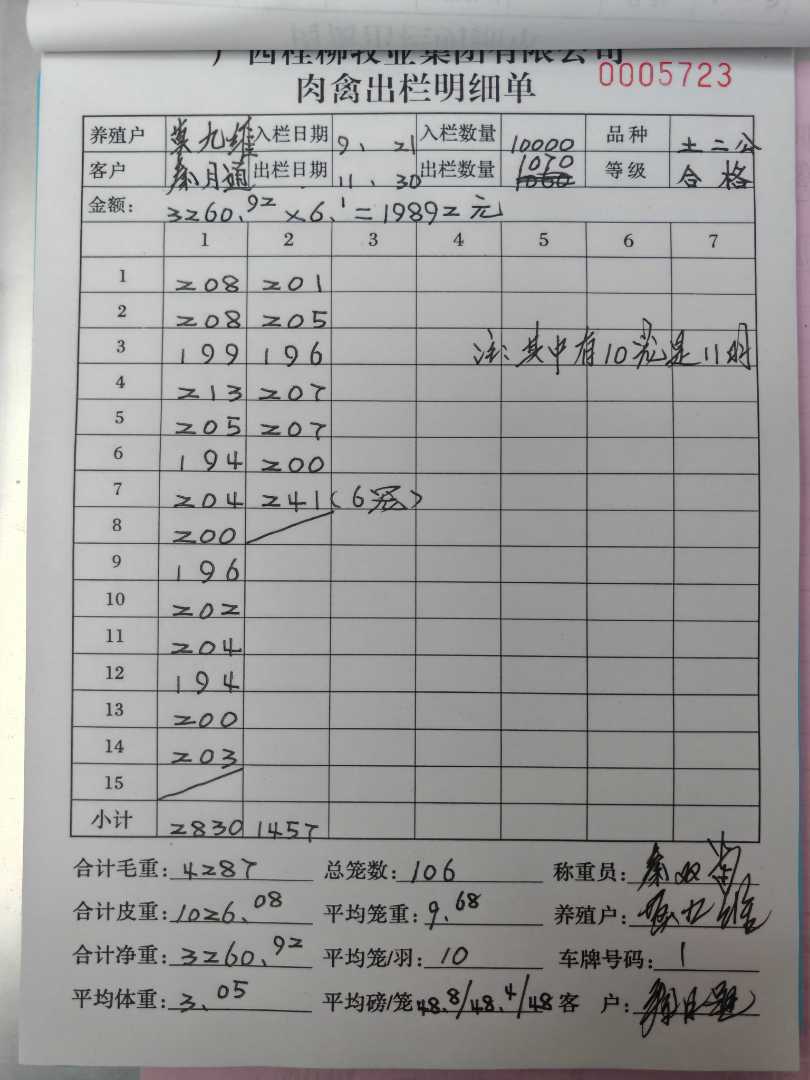 广西桂柳牧业集团有限公司
肉禽出栏明细单 0005723
养殖户 莫九维 入栏日期 9、21 入栏数量 10000 品种 土二公
客户 秦月通 出栏日期 11、30 出栏数量 1070 等级 合格
金额: 3260.92 × 6.1 = 19892元
1 2 3 4 5 6 7
1 208 201
2 208 205
3 199 196 注: 其中有10笼是11只
4 213 207
5 205 207
6 194 200
7 204 241(6笼)
8 200
9 196
10 202
11 204
12 194
13 200
14 203
15
小计 2830 1457
合计毛重: 4287 总笼数: 106 称重员:
合计皮重: 1026.08 平均笼重: 9.68 养殖户:
合计净重: 3260.92 平均笼/羽: 10 车牌号码: 1
平均体重: 3.05 平均磅/笼 48.8/48.4/48 客 户: